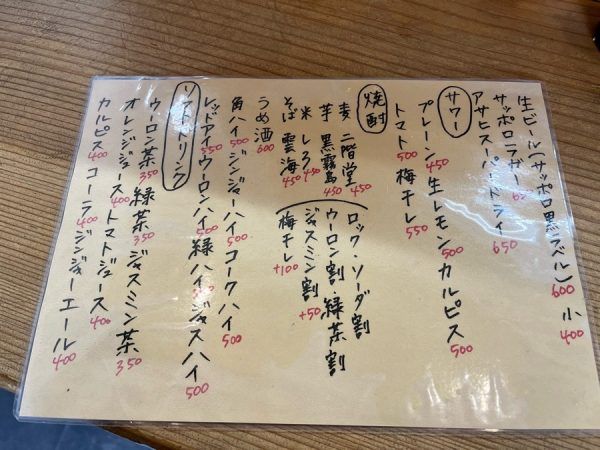 生ビール(サッポロ黒ラベル)600 小400
サッポロラガー650
アサヒスーパードライ650
サワー
プレーン450 生レモン500 カルピス500
トマト500 梅干し550
焼酎
麦 二階堂450
芋 黒霧島450
米 しろ450
そば 雲海450
ロック・ソーダ割
ウーロン割・緑茶割
ジャスミン割+50
梅干し+100
うめ酒600
角ハイ500 ジンジャーハイ500 コークハイ500
レッドアイ550 ウーロンハイ500 緑ハイ ジャスハイ500
ソフトドリンク
ウーロン茶350 緑茶350 ジャスミン茶350
オレンジジュース400 トマトジュース400
カルピス400 コーラ400 ジンジャーエール400